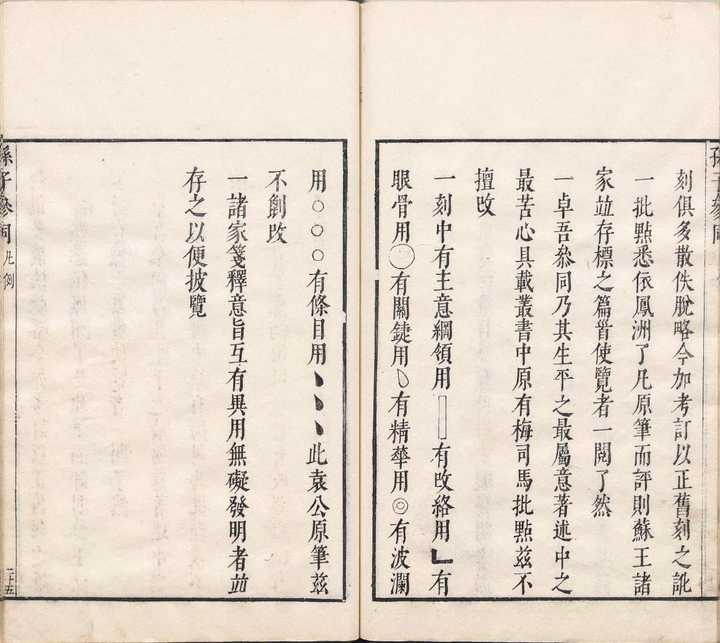 刻俱多散佚脫略今加考訂以正舊刻之訛
一批點悉依鳳洲了凡原筆而評則蘇王諸
家竝存標之篇首使覽者一閱了然
一卓吾叅同乃其生平之最屬意著述中之
最苦心具載叢書中原有梅司馬批點茲不
擅改
一刻中有主意綱領用▯有改絡用┗有
眼骨用◯有關鍵用有精華用◎有波瀾
用○○○有條目用、、、此袁公原筆茲
不創改
一諸家箋釋意旨互有異用無礙發明者竝
存之以便披覽
孫子叅同
凡例
二十五